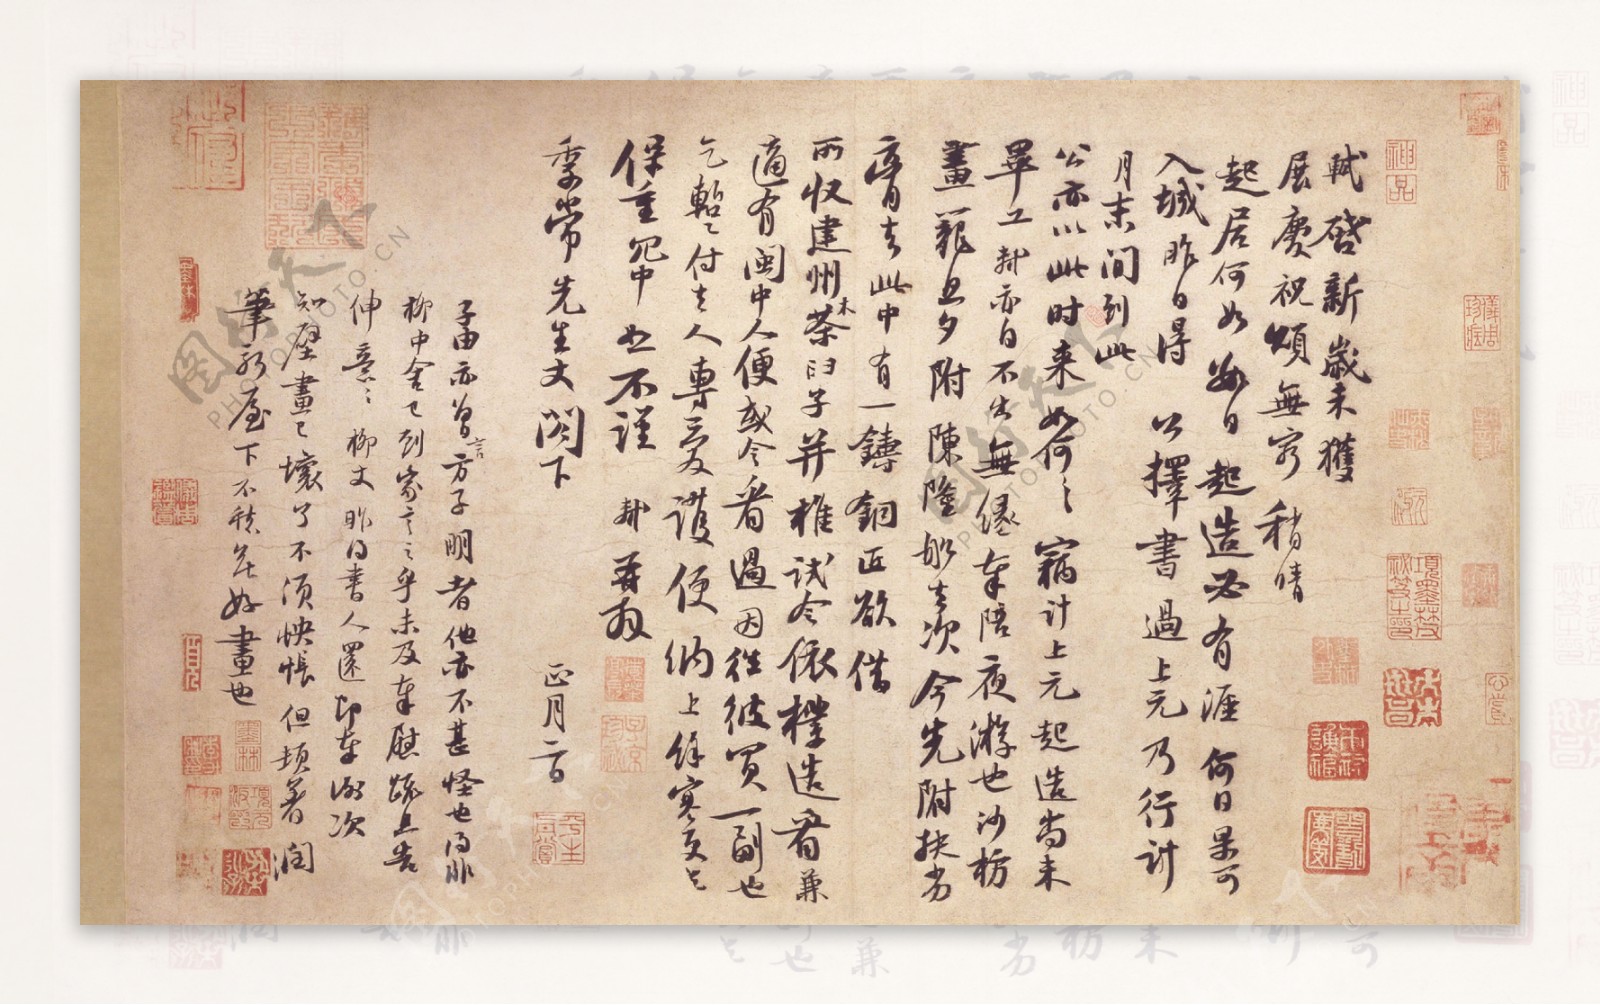 軾啓新歲未獲
展慶祝頌無窮稍晴
起居何如數日起造必有涯何日果可
入城昨日得公擇書過上元乃行計
月末間到此
公亦以此時来如何〻竊計上元起造尚未
畢工軾亦自不出無緣奉陪夜游也沙枋
畫籠旦夕附陳隆船去次今先附扶劣
膏去此中有一鑄銅匠欲借
所收建州木茶臼子并椎試令依樣造看兼
適有閩中人便或令看過因往彼買一副也
乞暫〻付去人專愛護便納上餘寒更乞
保重冗中恕不謹軾再拜
季常先生丈閤下
正月二日
子由亦曾言方子明者他亦不甚怪也得非
柳中舍已到家言之乎未及奉慰疏且告
伸意〻柳丈昨得書人還即奉謝次
知壁畫已壞了不須怏悵但頓著潤
筆新屋下不愁無好畫也